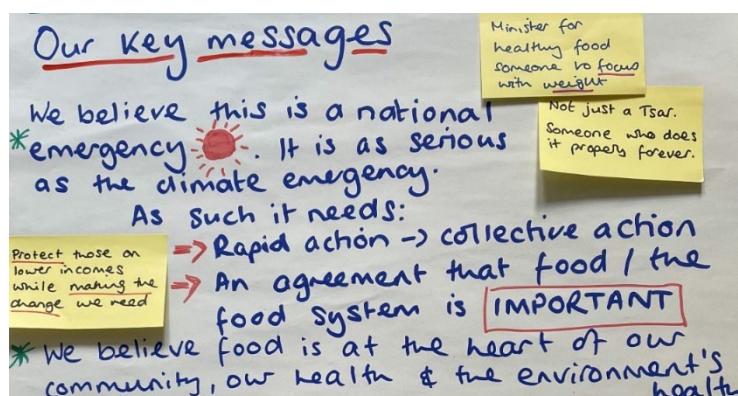 Our key messages
Minister for
healthy food
someone to focus
with weight
Not just a Tsar.
Someone who does
it properly forever.
We believe this is a national
*emergency. It is as serious
as the climate emergency.
As such it needs:
Protect those on
lower incomes
while making the
change we need
⇒ Rapid action → collective action
⇒ An agreement that food / the
food system is IMPORTANT
* We believe food is at the heart of our
community, our health & the environment's
health